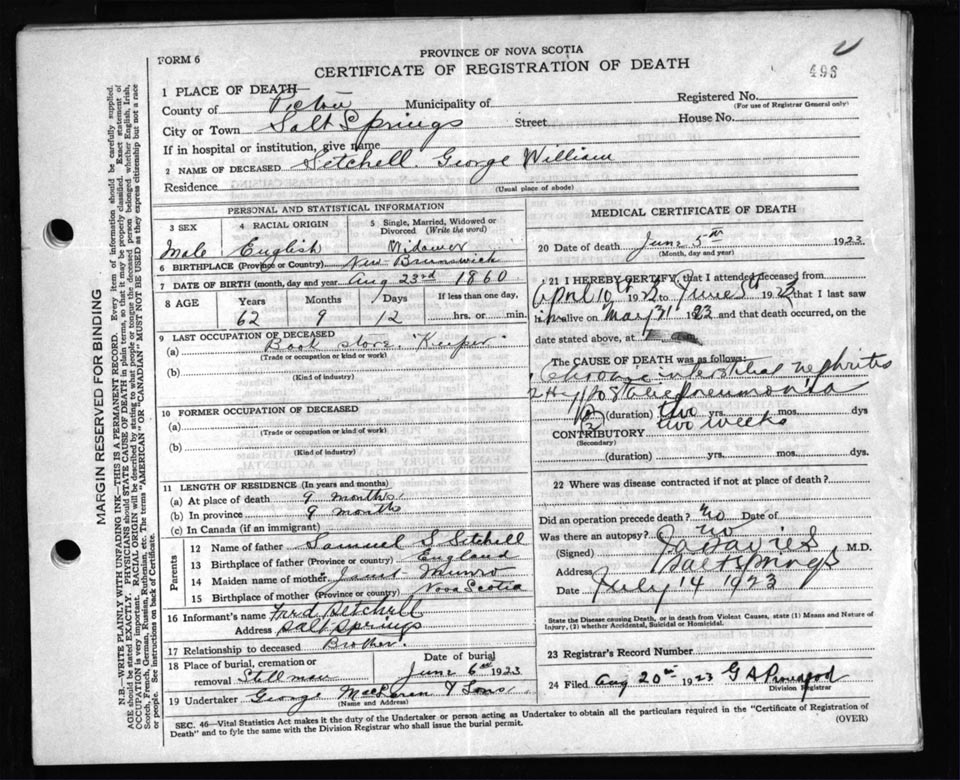 PROVINCE OF NOVA SCOTIA
FORM 6
CERTIFICATE OF REGISTRATION OF DEATH
496
1 PLACE OF DEATH—
County of Pictou Municipality of
Registered No.
(For use of Registrar General only)
City or Town Salt Springs Street House No.
If in hospital or institution, give name
2 NAME OF DECEASED Setchell George William
Residence
(Usual place of abode)
PERSONAL AND STATISTICAL INFORMATION
3 SEX 4 RACIAL ORIGIN 5 Single, Married, Widowed or Divorced (Write the word)
Male English Widower
6 BIRTHPLACE (Province or Country) New Brunswick
7 DATE OF BIRTH (month, day and year) Aug 23rd 1860
8 AGE Years Months Days If less than one day,
62 9 12 hrs. or min.
9 LAST OCCUPATION OF DECEASED
(a) Book store "Keeper"
(Trade or occupation or kind of work)
(b)
(Kind of industry)
10 FORMER OCCUPATION OF DECEASED
(a)
(Trade or occupation or kind of work)
(b)
(Kind of industry)
11 LENGTH OF RESIDENCE (In years and months)
(a) At place of death 9 months
(b) In province 9 months
(c) In Canada (if an immigrant)
Parents
12 Name of father Samuel S Setchell
13 Birthplace of father (Province or country) England
14 Maiden name of mother Munro
15 Birthplace of mother (Province or country) Nova Scotia
16 Informant's name Fred Setchell
Address Salt Springs
17 Relationship to deceased Brother.
18 Place of burial, cremation or removal Stillman
Date of burial June 6th 1923
19 Undertaker George MacLaren & Sons
(Name and Address)
MEDICAL CERTIFICATE OF DEATH
20 Date of death June 5th 1923
(Month, day and year)
21 I HEREBY CERTIFY that I attended deceased from
April 10th 1923 to June 5th 1923 that I last saw
him alive on May 31 1923 and that death occurred, on
date stated above, at
The CAUSE OF DEATH was as follows:
1 Chronic interstitial nephritis
2 Hypostatic pneumonia
(1) (duration) two yrs. mos. dys
(2) two weeks
CONTRIBUTORY
(Secondary)
(duration) yrs. mos. dys.
22 Where was disease contracted if not at place of death?
Did an operation precede death? no Date of
Was there an autopsy? no
(Signed) Davies M.D.
Address Salt Springs
Date July 14 1923
State the Disease causing Death, or in death from Violent Causes, state (1) Means and Nature of
Injury, (2) whether Accidental, Suicidal or Homicidal.
23 Registrar's Record Number
24 Filed Aug 20th 1923 G A
Division Registrar
SEC. 46—Vital Statistics Act makes it the duty of the Undertaker or person acting as Undertaker to obtain all the particulars required in the "Certificate of Registration of
Death" and to fyle the same with the Division Registrar who shall issue the burial permit.
(OVER)
MARGIN RESERVED FOR BINDING
N.B.—WRITE PLAINLY WITH UNFADING INK—THIS IS A PERMANENT RECORD. Every item of information should be carefully supplied.
AGE should be stated EXACTLY. PHYSICIANS should STATE CAUSE OF DEATH in plain terms, so that it may be properly classified. Exact statement of
OCCUPATION is very important. RACIAL ORIGIN will be described by stating to what people or tongue the deceased person belonged whether English, Irish,
Scotch, French, German, Russian, Ruthenian, etc. The terms "AMERICAN" OR "CANADIAN" MUST NOT BE USED as they express citizenship but not a race
or people. See instructions on back of Certificate.